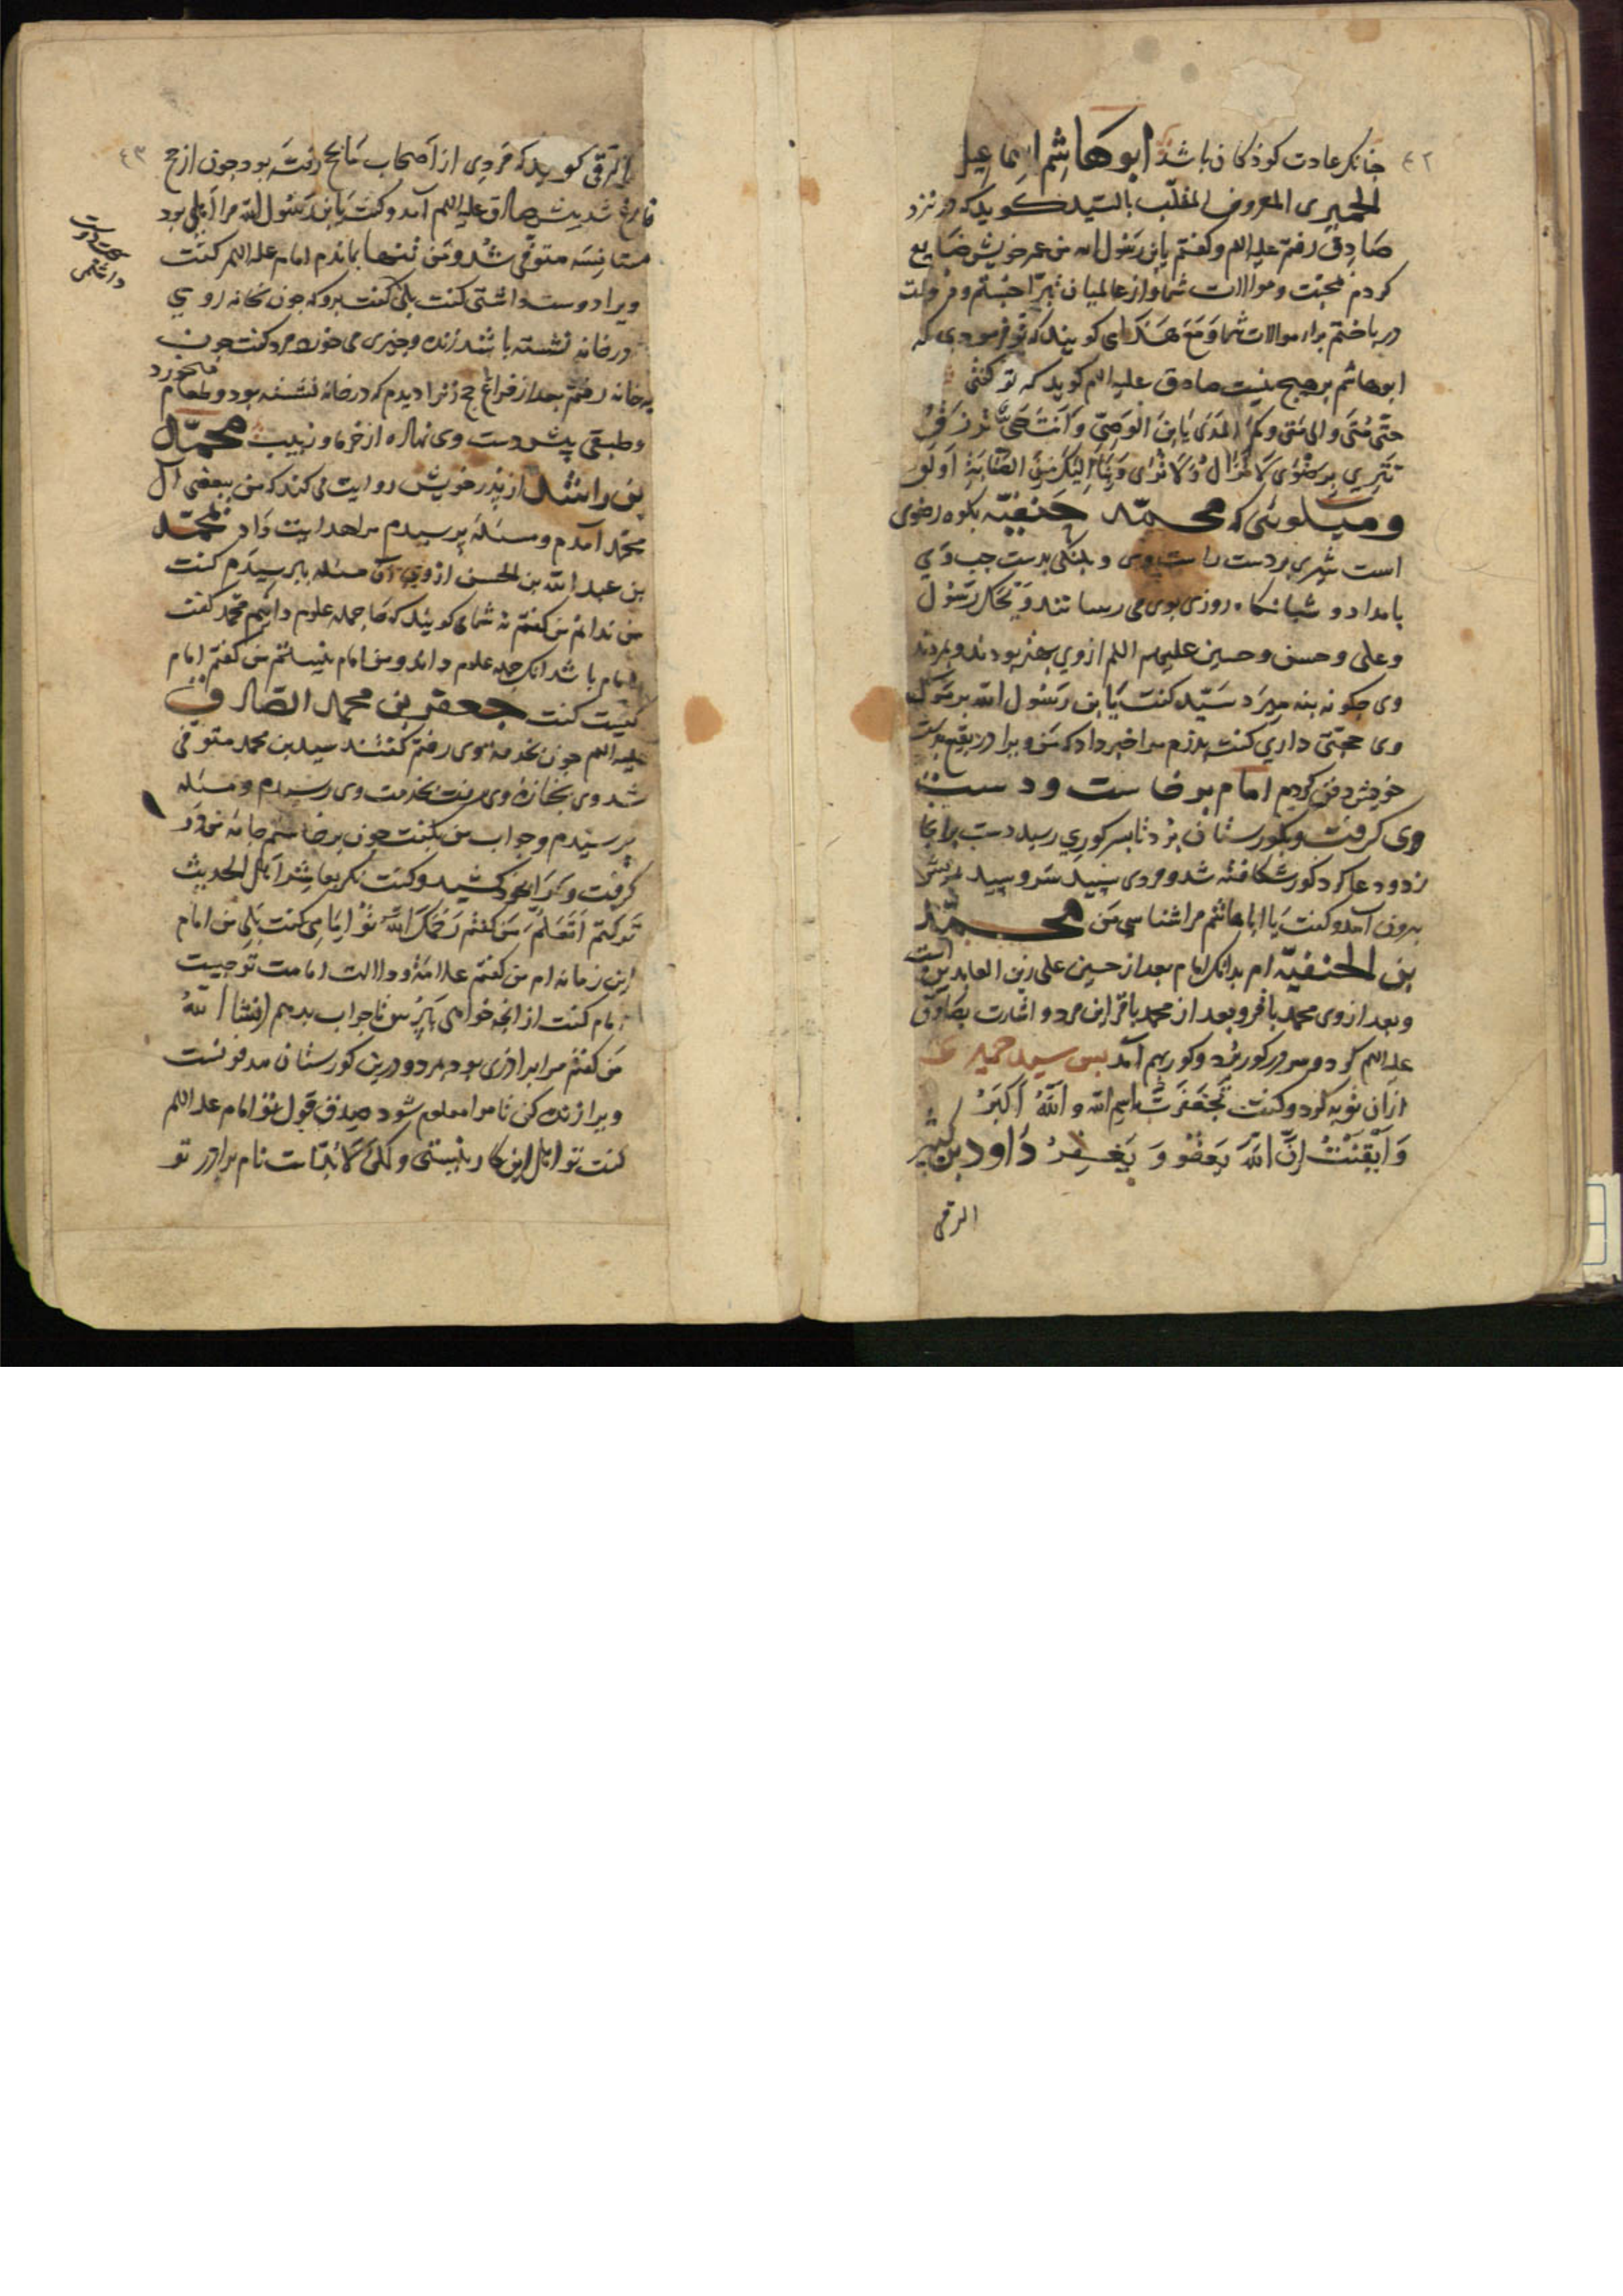 ٤٢
چنانکر عادت کوذکان باشد ابوهاشم اسماعیل
الحمیری المعروف الملقب بالسید کویدکه در نزد
صادق رفتم علیه السلم وکفتم یابن رسول الله من عمر خویش ضایع
کردم محبت وموالات شما واز عالمیان تبرا جستم و
درباختم برای موالات شما ومع هذا می کویندکه تو فرمودی که
ابوهاشم بر هیچ نیست صادق علیه السلم کوید که تو کفتی
حتی متی والی متی وکم المدی یابن الوصی وانت حی ترزق
برضوی لاتزال ولا تری وبنا الیک من الصبابة اولق
ومیکوئی که محمد حنفیه بکوه رضوی
است شیری بر دست راست وی و پلنکی بدست چپ وی
بامداد و شبانکاه روزی بوی می رسانند ویحک رسول
وعلی وحسن وحسین علیهم السلم ازوی بهتر بودند وبمردند
وی چکونه بنه میرد سید کفت یابن رسول الله بر مرک
وی حجتی داری کفت پدرم مرا خبر داد که من ویرا در بقیع بدست
خویش دفن کردم امام برخاست ودست
وی کرفت وبکورستان برد تا بسر کوری رسید دست برانجا
زد ودعا کرد کور شکافته شد ومردی سپید سر وسپید ریش
بیرون آمد وکفت یا اباهاشم مرا شناسی من محمد
بن الحنفیه ام بدانک امام بعد از حسین علی زین العابدین است
وبعد ازوی محمد باقر وبعد از محمد باقر این مرد واشارت بصادق
علیه السلم کرد وسر در کور برد وکور بهم آمد پس سید حمیری
ازان توبه کرد وکفت تجعفرت باسم الله والله اکبر
وایقنت ان الله یعفو ویغفر داود بن کثیر
الرقی
٤٣
الرقی کوید که مردی از اصحاب ما بحج رفته بود چون از حج
فارغ شد پیش صادق علیه السلم آمد وکفت یابن رسول الله مرا اهلی بود
متوفی شد ومن تنها بماندم امام علیه السلم کفت
ویرا دوست داشتی کفت بلی کفت برو که چون بخانه روی
در خانه نشسته باشد زنده وچیزی می خورد مرد کفت چون
به خانه رفتم بعد از فراغ حج زنرا دیدم که در خانه نشسته بود وطعام میخورد
وطبقی پیش دست وی نهاده از خرما وزبیب محمد
بن راشد از پدر خویش روایت می کند که من ببعضی آل
محمد آمدم ومسئله پرسیدم مرا هدایت داد بمحمد
بن عبد الله بن الحسن ازوی آن مسئله بپرسیدم کفت
من ندانم من کفتم نه شما می کوئید که ما جمله علوم دانیم محمد کفت
امام باشد انک جمله علوم داند ومن امام نیستم من کفتم امام
کیست کفت جعفر بن محمد الصادق
علیه السلم چون بخدمه وی رفتم کفتند سید بن محمد متوفی
شد وی بجنازه وی رفت بخدمت وی رسیدم ومسئله
پرسیدم وجواب من بکفت چون برخاستم جامه من در
کرفت ومرا بخود کشید وکفت انکم معاشر اهل الحدیث
ترکتم العلم من کفتم رحمک الله تو امامی کفت بلی من امام
این زمانه ام من کفتم علامة ودلالت امامت تو چیست
امام کفت از انچه خواهی بپرس تا جواب بدهم انشا الله
من کفتم مرا برادری بود بمرد ودرین کورستان مدفونست
ویرا زنده کن تا مرا معلوم شود صدق قول تو امام علیه السلم
کفت تو اهل این کار نیستی ولکن لابدست نام برادر تو